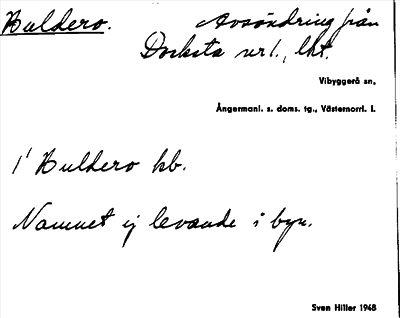 Huldero. Avsöndring från
Docksta nr 1, lht.
Vibyggerå sn.
Ångermanl. s. doms. tg., Västernorrl. l.
1' Huldero kb.
Namnet ej levande i byn.
Sven Hiller 1948